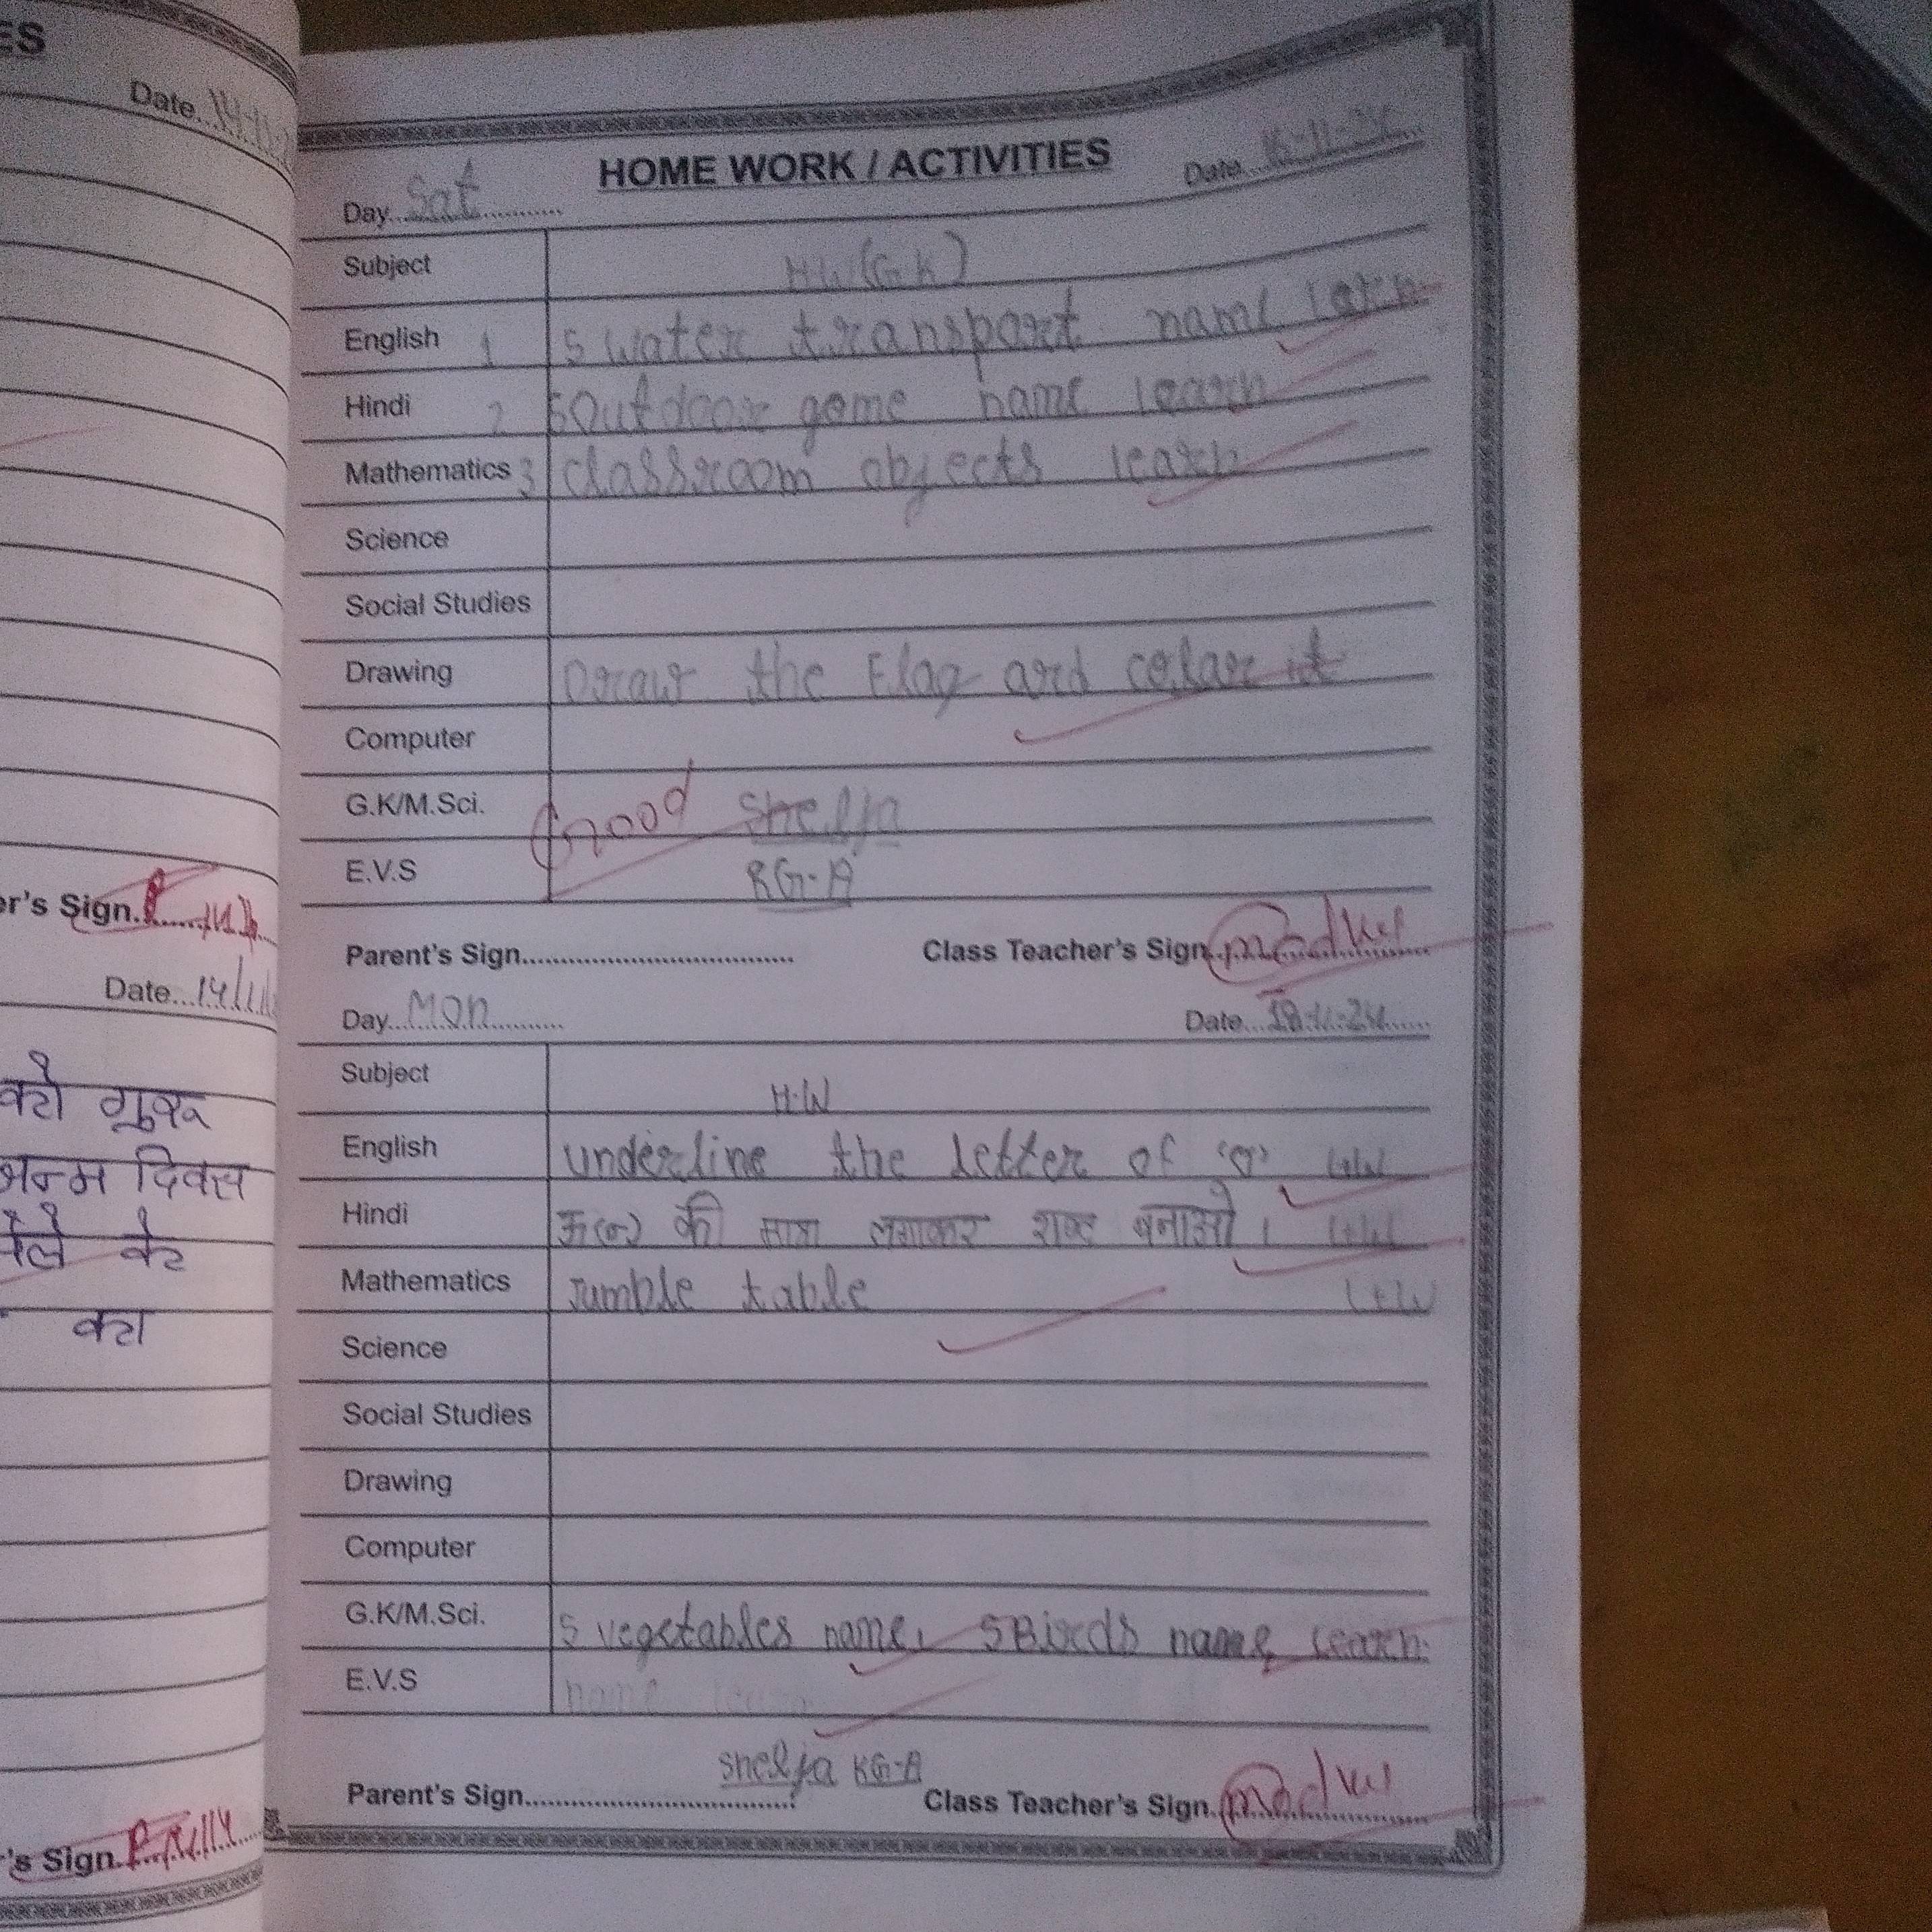 ES
Date 14-11-2
HOME WORK / ACTIVITIES
Day Sat
Date 16-11-24
Subject H.W (G.K)
English 1 5 water transport name learn
Hindi 2 5 Outdoor game name learn
Mathematics 3 classroom objects learn
Science
Social Studies
Drawing Draw the Flag and color it
Computer
G.K/M.Sci. Good Shelja
E.V.S KG-A
Parent's Sign. Class Teacher's Sign. Madhu
er's Sign.
Date 14/11/
Day Mon
Date 18-11-24
Subject H.W
English underline the letter of 'o' L+W
Hindi ऊ(ू) की मात्रा लगाकर शब्द बनाओ। L+W
Mathematics Jumble table L+W
Science
Social Studies
Drawing
Computer
G.K/M.Sci. 5 vegetables name, 5 Birds name learn.
E.V.S name learn
Shelja KG-A
Parent's Sign. Class Teacher's Sign. Madhu
को
जन्म दिवस
के
का
's Sign.